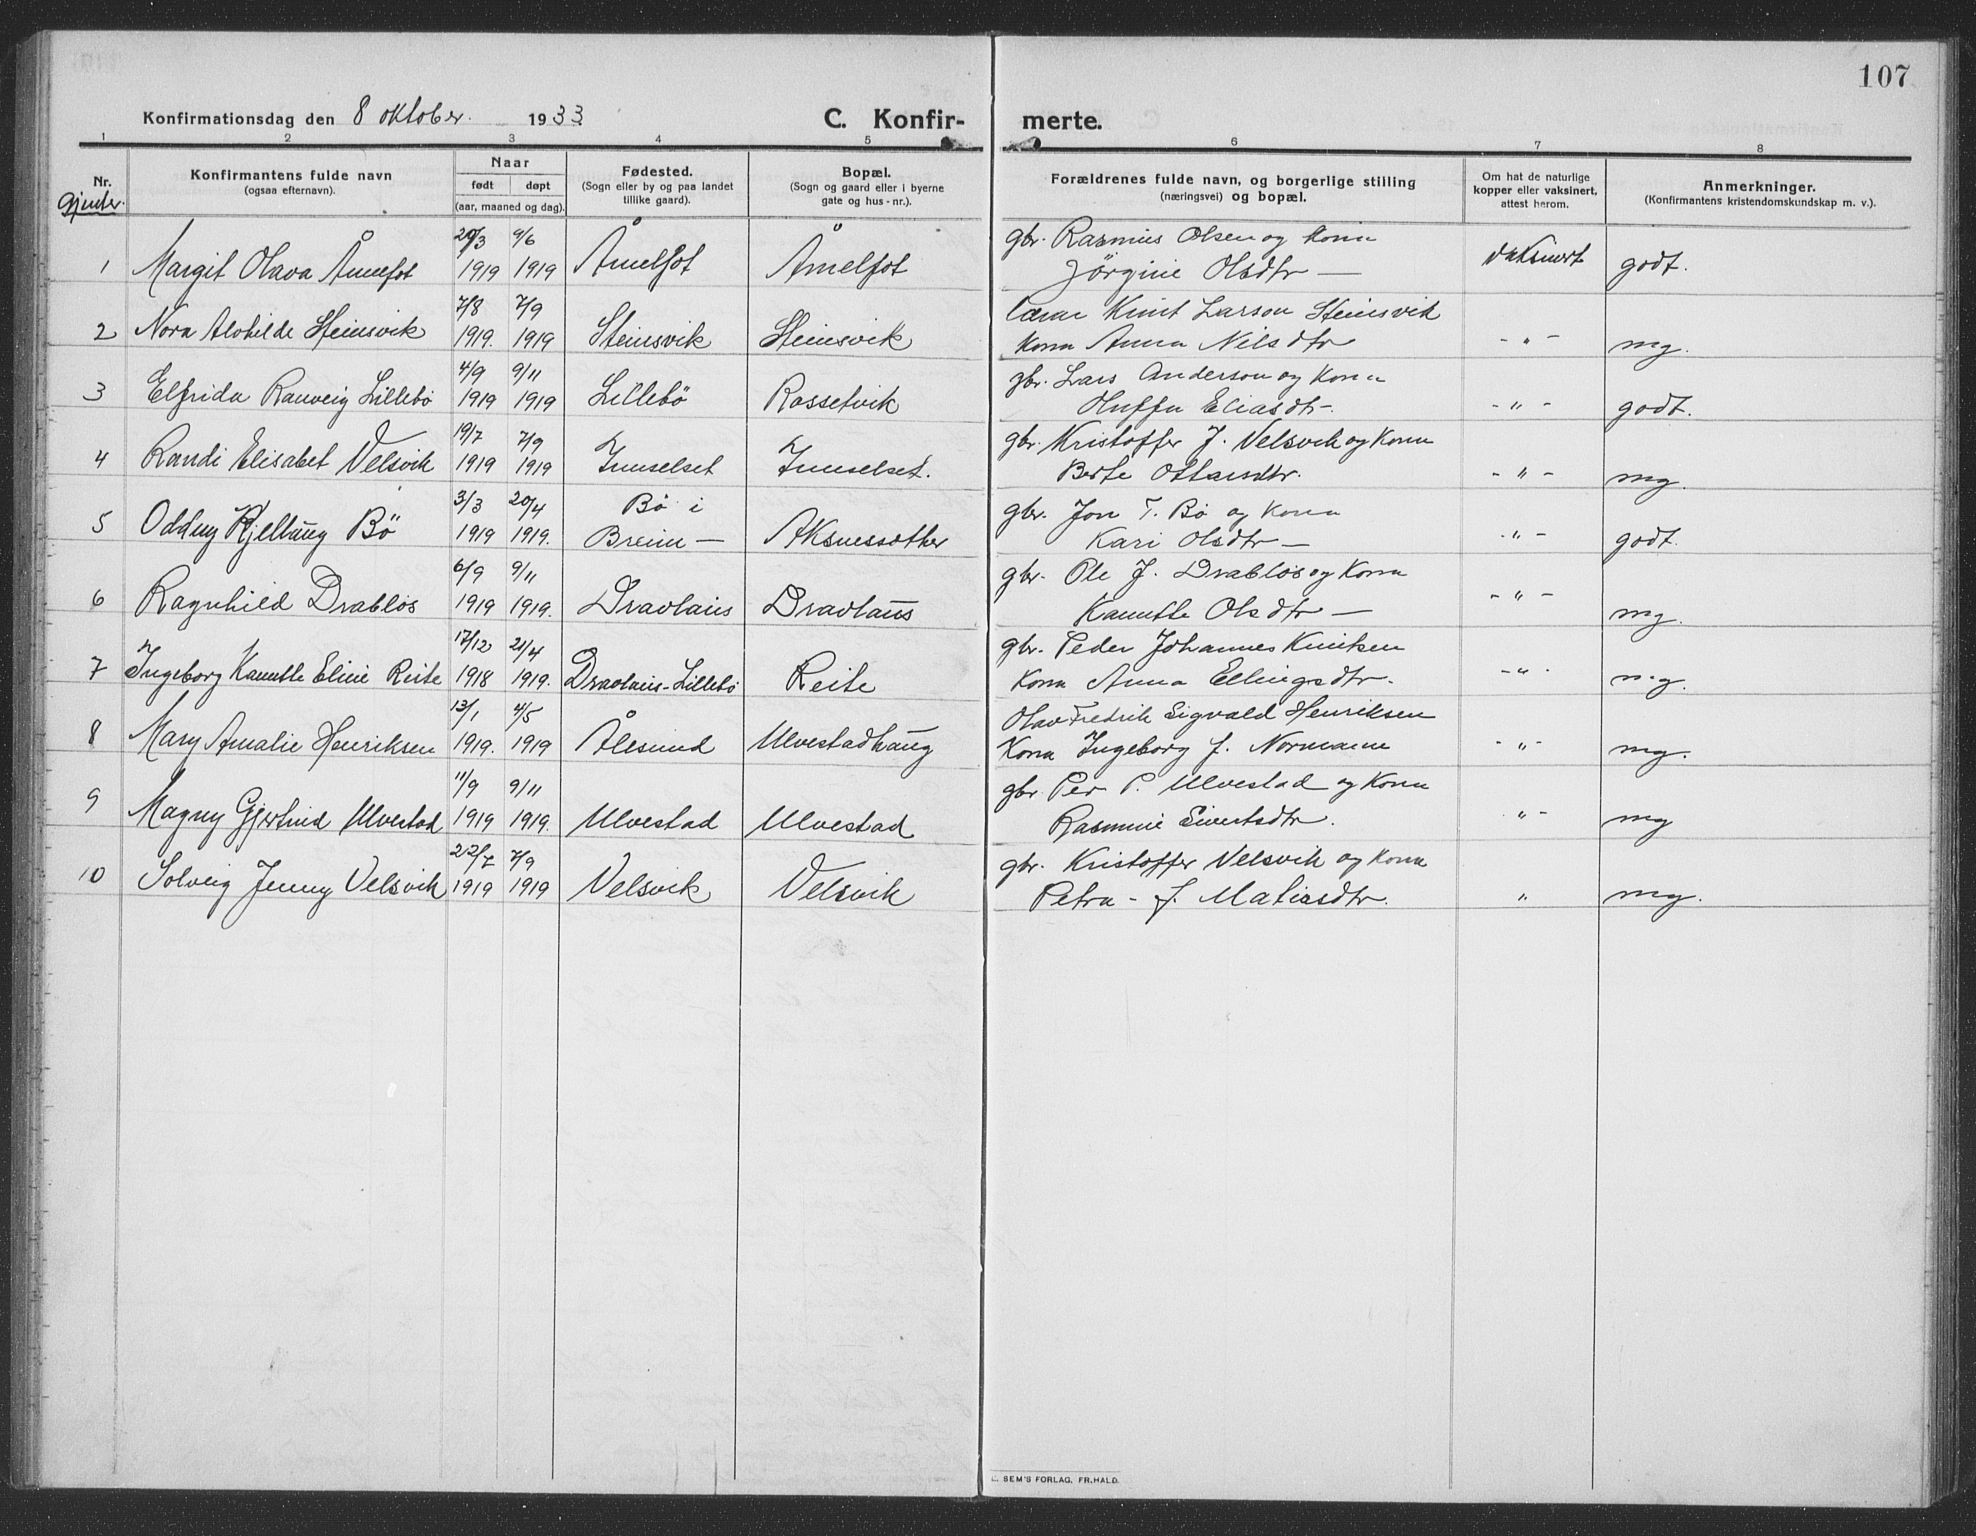 107
Konfirmationsdag den 8 oktober. 1933. C. Konfir- merte.
1 2 3 4 5 6 7 8
Nr. Konfirmantens fulde navn (ogsaa efternavn). Naar født døpt (aar, maaned og dag). Fødested. (Sogn eller by og paa landet tillike gaard). Bopæl. (Sogn og gaard eller i byerne gate og hus-nr.). Forældrenes fulde navn, og borgerlige stilling (næringsvei) og bopæl. Om hat de naturlige kopper eller vaksinert, attest herom. Anmerkninger. (Konfirmantens kristendomskundskap m. v.).
Gjenter.
20/3 9/6 gbr. Rasmus Olsen og kona
1 Margit Olava Åmelfot 1919 1919 Åmelfot Åmelfot Jörgine Olsdtr — vaksinert godt.
7/8 7/9 Lærar Knut Larson Steinsvik
2 Nora Alvhilde Steinsvik 1919. 1919 Steinsvik Steinsvik Kona Anna Nilsdtr - " - mg.
4/9 9/11 gbr. Lars Anderson og Kona
3 Elfrida Ranveig Lillebö 1919 1919 Lillebö Rossetvik Eliasdtr. - " - godt.
19/7 7/9 gbr. Kristoffer J. Velsvik og Kona
4 Randi Elisabet Velsvik 1919 1919 Innselset Innselset. Berte Ottarsdtr. - " - mg.
3/3 20/4 Bö i gbr. Jon T. Bö og Kona
5 Oddny Kjellaug Bö 1919 1919. Breim — Aksnessæther Kari Olsdtr — . " - godt.
6/9 9/11 gbr. Ole J. Drabløs og Kona
6 Ragnhild Drabløs 1919 1919. Dravlaus Dravlaus Kanutte Olsdtr — - " - mg.
17/12 21/4 gbr. Peder Johannes Knutsen
7 Ingeborg Kanutte Eline Reite 1918 1919. Dravlaus-Lillebö Reite Kona Anna Ellingsdtr. - " - mg.
13/1 4/5 Olav Fredrik Sigvald Henriksen
8 Mary Amalie Henriksen 1919. 1919 Ålesund Ulvestadhaug Kona Ingeborg J. Normann - " - mg.
11/9 9/11 gbr. Per P. Ulvestad og Kona
9 Magny Gjertrud Ulvestad 1919 1919. Ulvestad Ulvestad Rasmine Sivertsdtr. " - mg
22/7 7/9 gbr. Kristoffer Velsvik og Kona
10 Solveig Jenny Velsvik 1919 1919 Velsvik Velsvik Petra - J. Matiasdtr. " mg.
SEM'S FORLAG, FR.HALD.